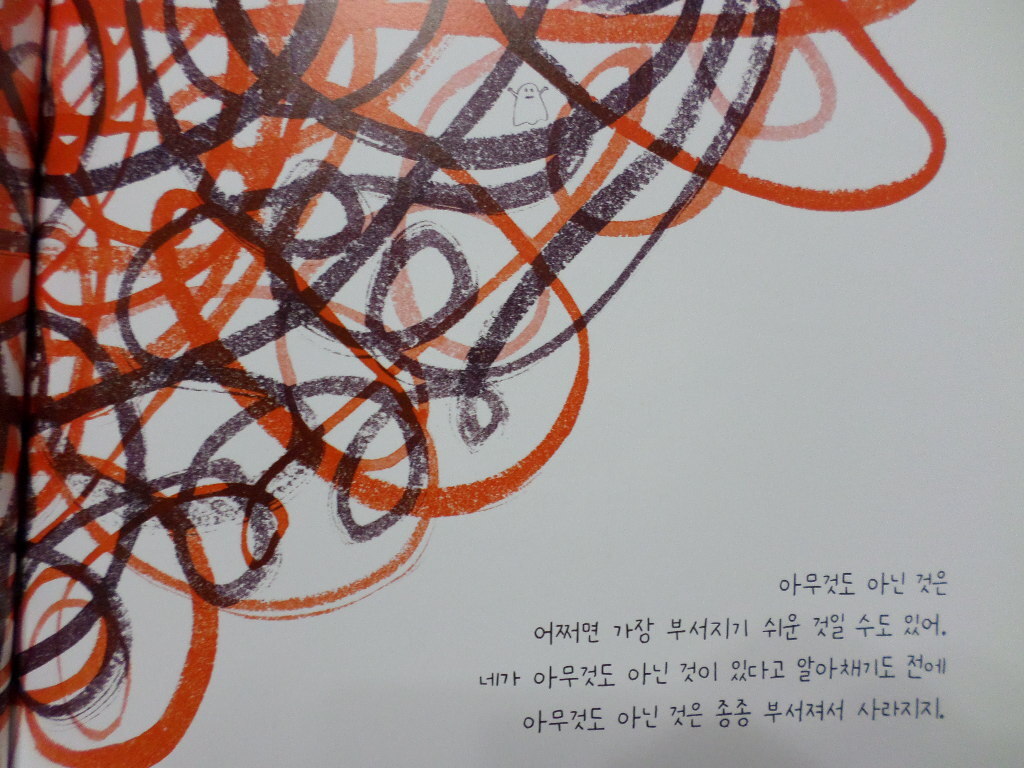 아무것도 아닌 것은
어쩌면 가장 부서지기 쉬운 것일 수도 있어.
네가 아무것도 아닌 것이 있다고 알아채기도 전에
아무것도 아닌 것은 종종 부서져서 사라지지.